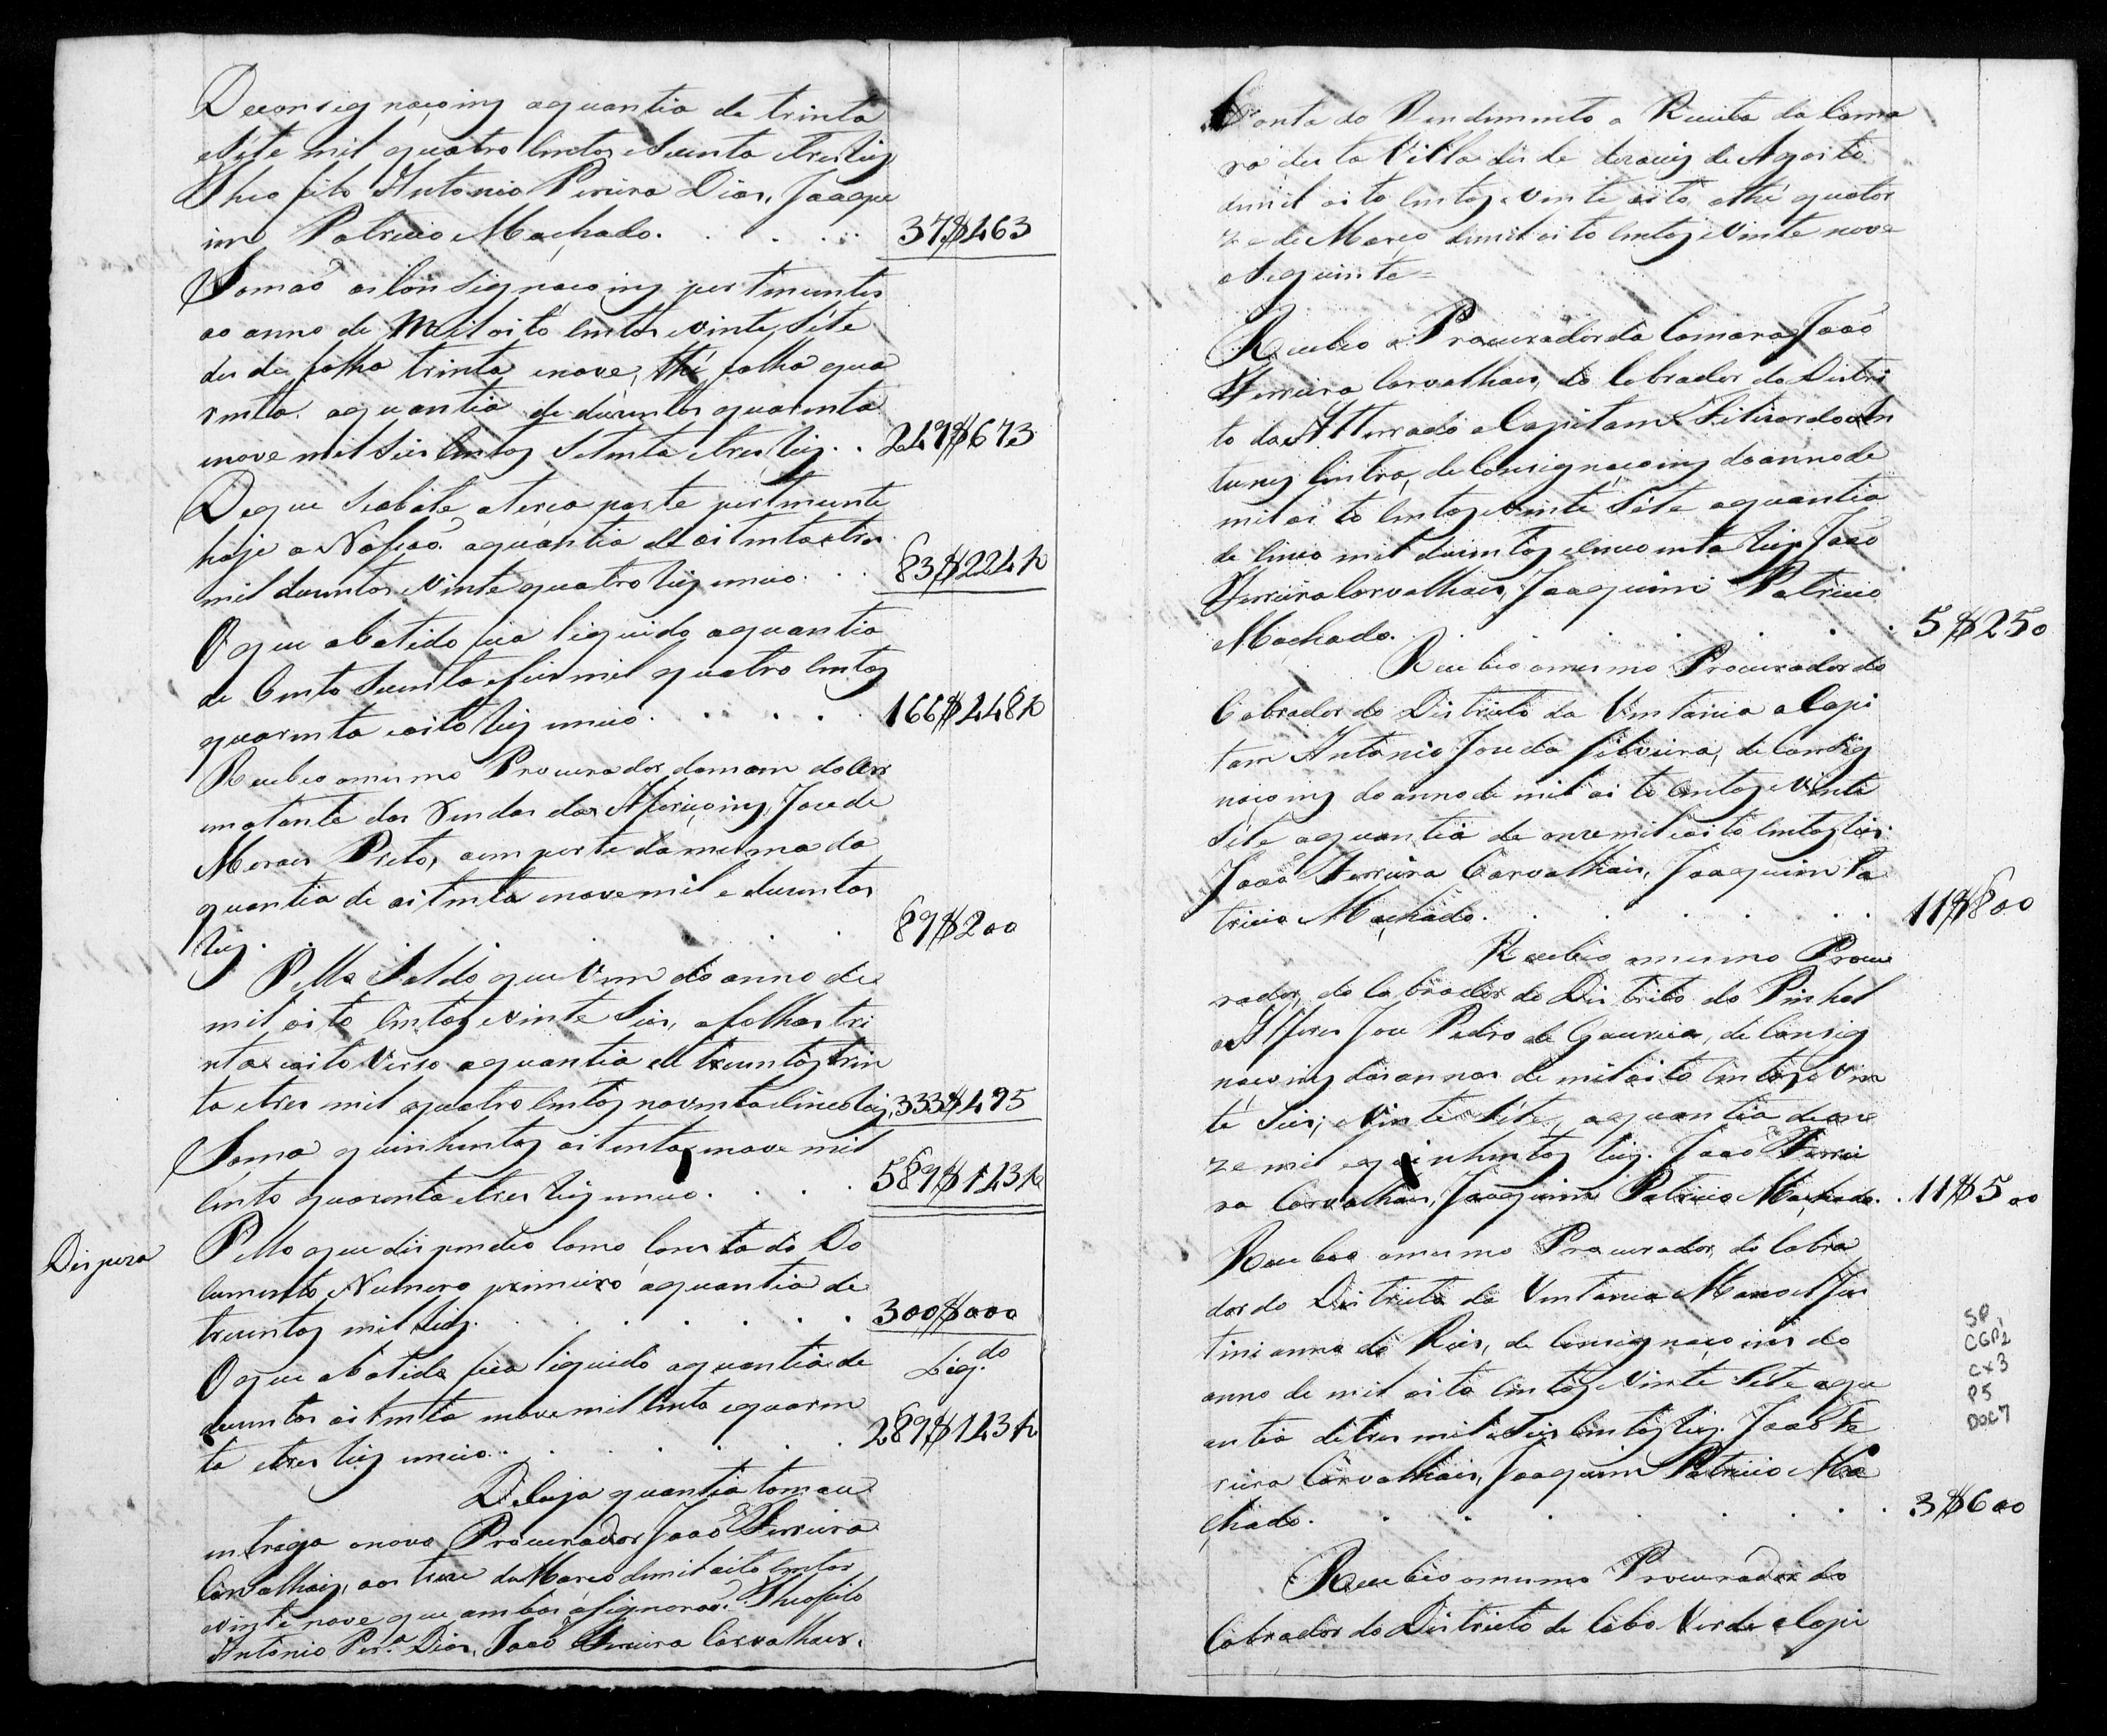 Deconsignaçoins aquantia de trinta
eSete mil quatro Centos eSecenta etres Reis
Theofilo Antonio Pereira Dias, Joaqu
im Patricio Machado. . . . . 37$463
Somaõ asConsignaçoins pertencentes
ao anno de Mil oito Centos evinte Sete
desde folha trinta enove, thé folha qua
renta. aquantia de duzentos quarenta
enove mil Seis Centos Setenta etres Reis. . 249$673
Deque Seabate aterca parte pertencente
hoje a Nasçaõ. aquantia de oitentaetres
mil duzentos eVinte quatro Reis emeio. . . 83$224½
O que abatido fica liquido aquantia
de Cento Secenta eseis mil quatro Centos
quarenta eoito Reis emeio. . . . . 166$448½
Recebeo omesmo Procurador damam doArr
ematante das Rendas das Afericoins, Joze de
Moraes Preto, aem parte damesma da
quantia de oitenta enovemil e duzentos
Reis. . . . . 89$200
Pello Saldo que Vem do anno de
mil oito Centos evinte Seis, afolhas tri
nta eoito Verso aquantia de trezentos trin
ta etres mil quatro Centos noventaeCinco Reis, 333$495
Soma quinhentos oitenta enove mil
Cento quarenta etres Reis emeio. . . . 589$143½
Dispeza Pello que dispendeo Como Consta do Do
cumento Numero primeiro aquantia de
trezentos mil Reis. . . . . . 300$000
O que abatido fica liquido aquantia de Liq.do
duzentos oitenta enove mil Cento equaren
ta etres Reis emeio. . . . . . 289$143½
DeCuja quantia tomou
entrega onovo Procurador Joaõ Ferreira
Carvalhais, aos treze de Marco demil oito Centos
evinte nove que ambos asignaraõ. Theofilo
Antonio Per.a Dias, Joaõ Ferreira Carvalhaes.
Conta do Rendimento e Receita da Cama
ra desta Villa desde dezaseis de Agosto
demil oito Centos evinte oito, athé quator
ze de Março demil oito Centos eVinte nove
oSeguinte =
Recebeo o Procurador da Camara Joaõ
Ferreira Carvalhaes, do Cobrador do Distri
to do Atterrado o Capitam Feliçardo An
tunes Cintra, de Consignaçoins do anno de
mil oito Centos evinte Sete aquantia
de Cinco mil duzentos eCincoenta Reis Joaõ
Ferreira Carvalhaes, Joaquim Patricio
Machado. . . . . . 5$250
Recebeo omesmo Procurador do
Cobrador do Districto da Ventania o Capi
tam Antonio Joze da Silveira, de Consig
naçoins do anno de mil oito Centos eVinte
Sete aquantia de onze mil eoito Centos Reis.
Joaõ Ferreira Carvalhais, Joaquim Pa
tricio Machado. . . . . . 11$800
Recebeo omesmo Procu
rador, do Cobrador do Districto do Pinhal
o Alferes Joze Pedro de Gouveia, de Consig
naçoins dos annos de mil oito Centos eVin
te Seis, eVinte Sete, aquantia de on
ze mil equinhentos Reis. Joaõ Ferrei
ra Carvalhaes, Joaquim Patricio Machado. . 11$500
Recebeo omesmo Procurador, do Cobra
dor do Districto da Ventania Manoel Jus
tinianno do Reis, de Consignaçoins do
anno de mil oito Centos eVinte Sete aqu
antia detres mil eSeis Centos Reis. Joaõ Fe
rreira Carvalhais, Joaquim Patricio Ma
chado. . . . . . 3$600
Recebeo omesmo Procurador do
Cobrador do Districto de Cabo Verde oCapi
SP
CGP2
CX3
P5
DOC7